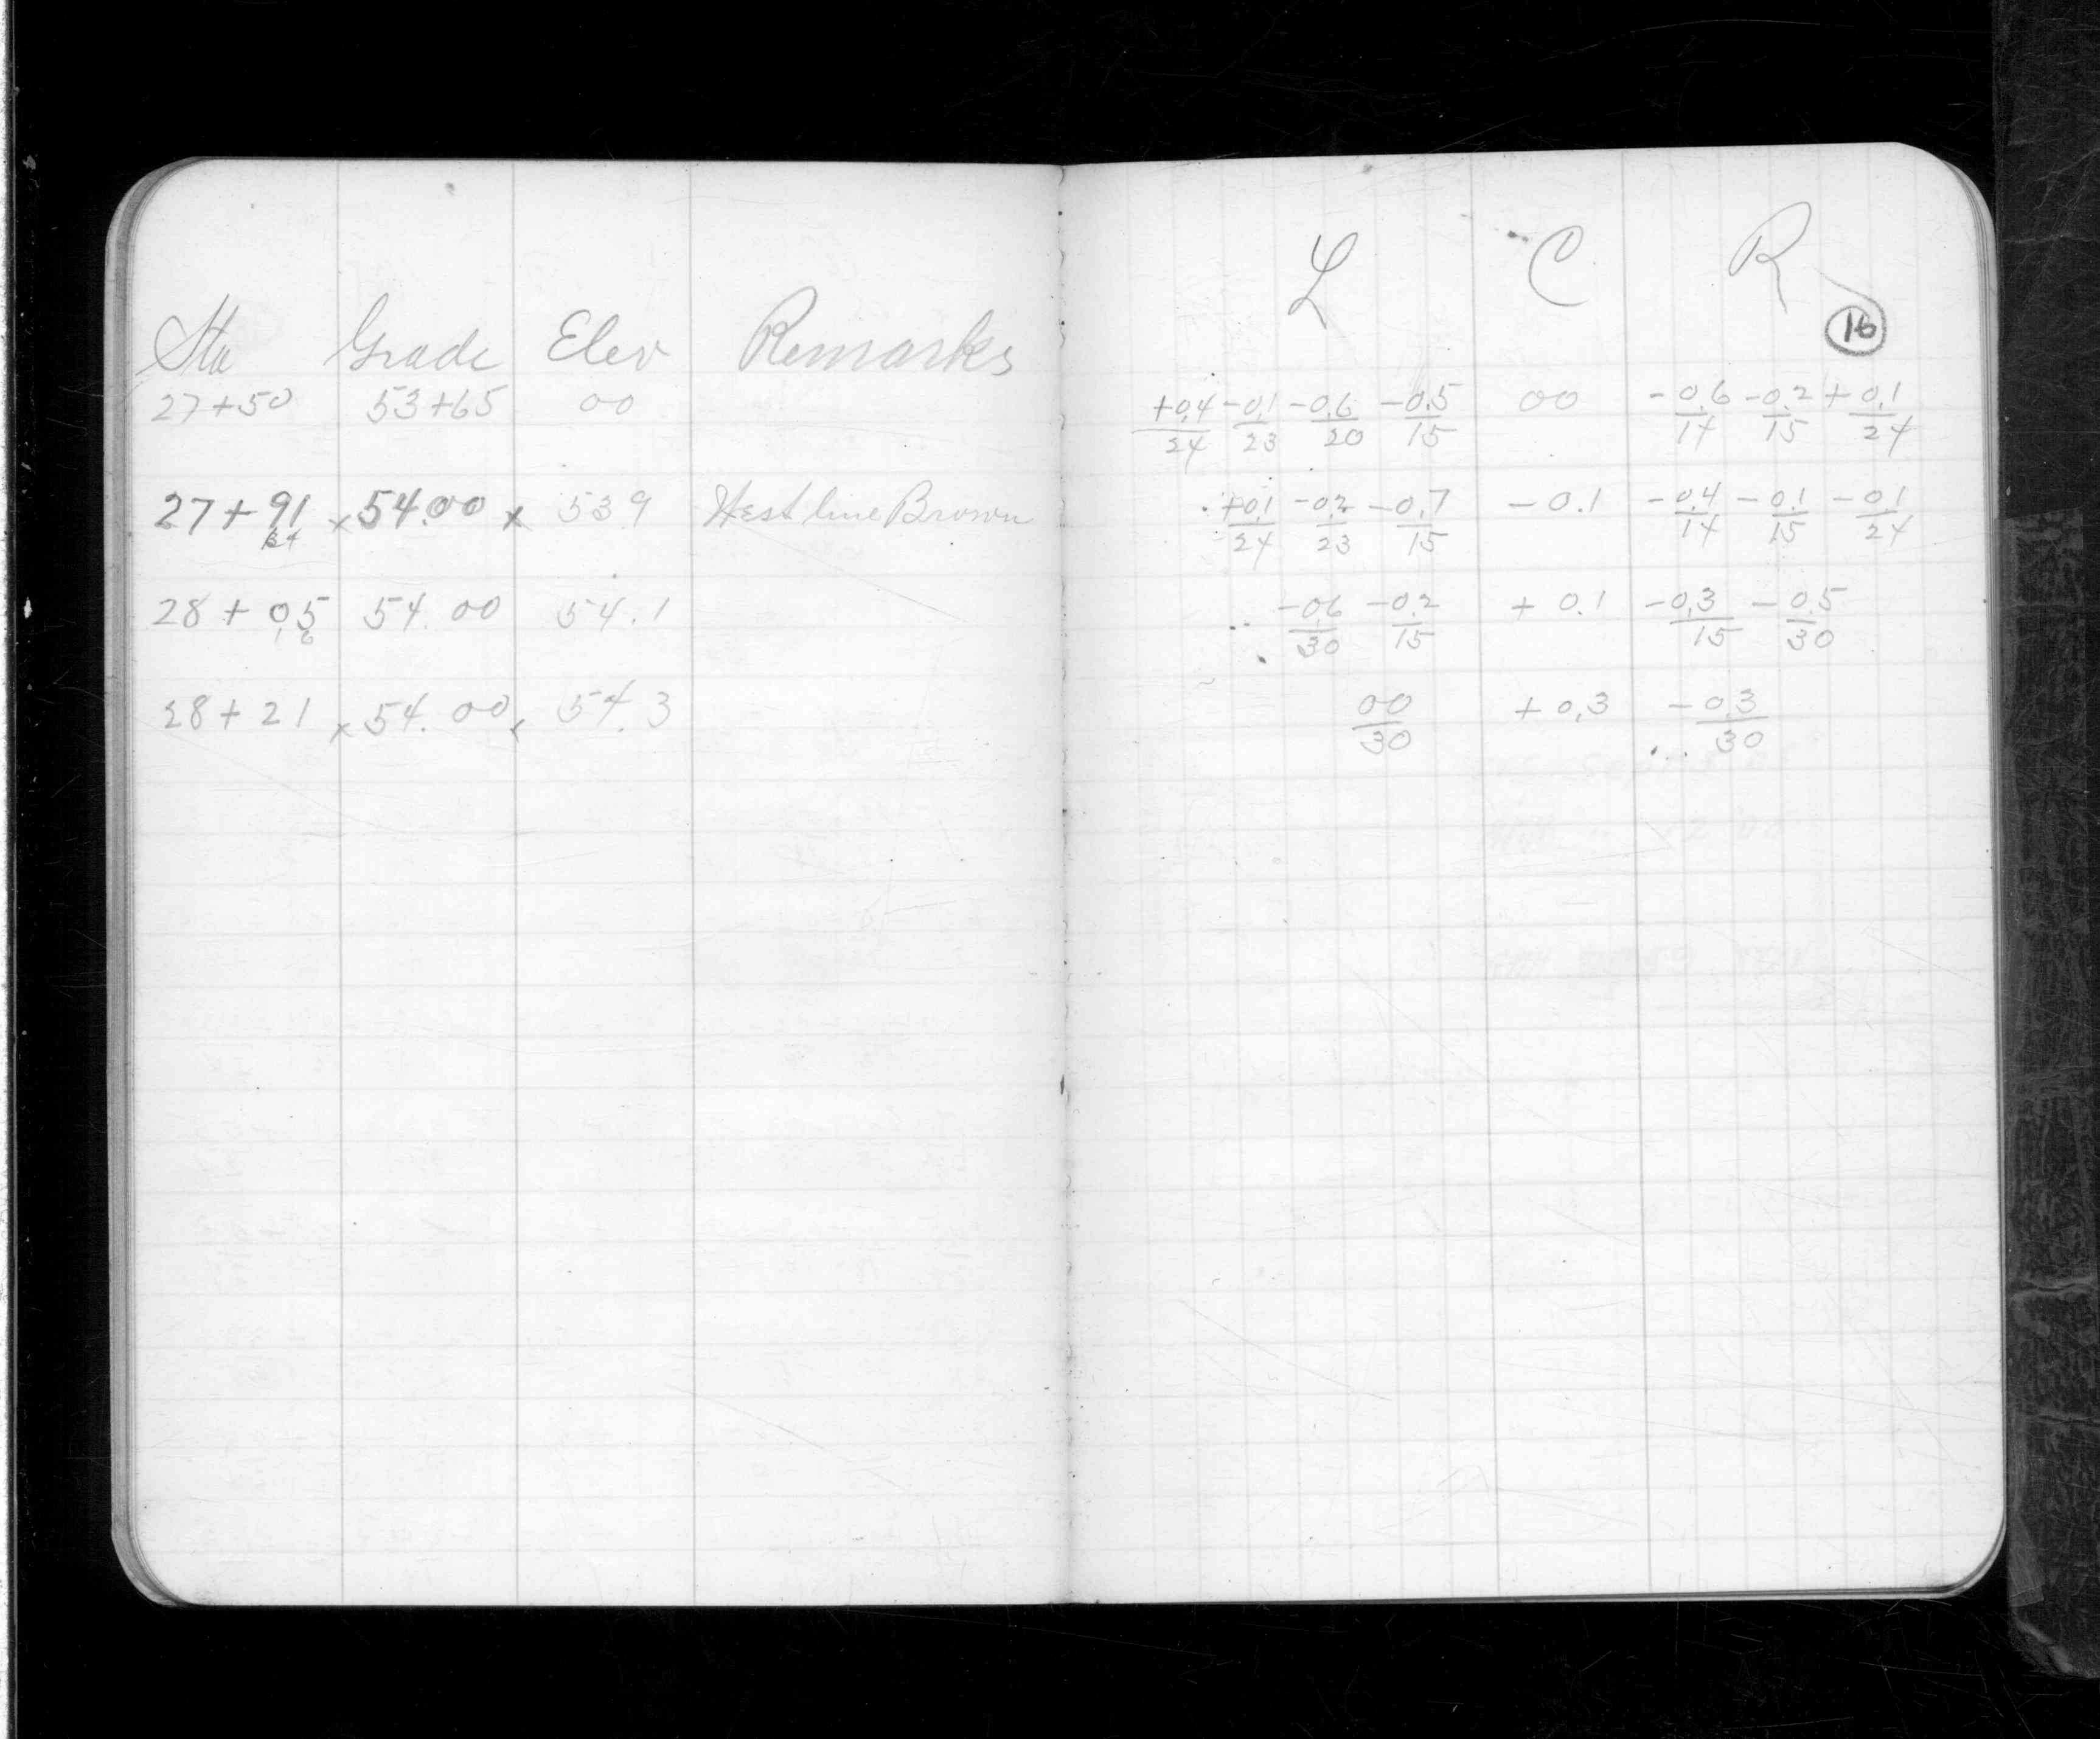 Sta Grade Elev Remarks
27+50 53+65 00
27+91 x 54.00 x 53 9 West line Brown
28+05 54.00 54.1
28+21 x 54.00 x 54.3
L C R
16
+0.4 -0.1 -0.6 -0.5 00 -0.6 -0.2 +0.1
24 23 20 15 14 15 24
+0.1 -0.2 -0.7 -0.1 -0.4 -0.1 -0.1
24 23 15 14 15 24
-0.6 -0.2 +0.1 -0.3 -0.5
30 15 15 30
00 +0.3 -0.3
30 30